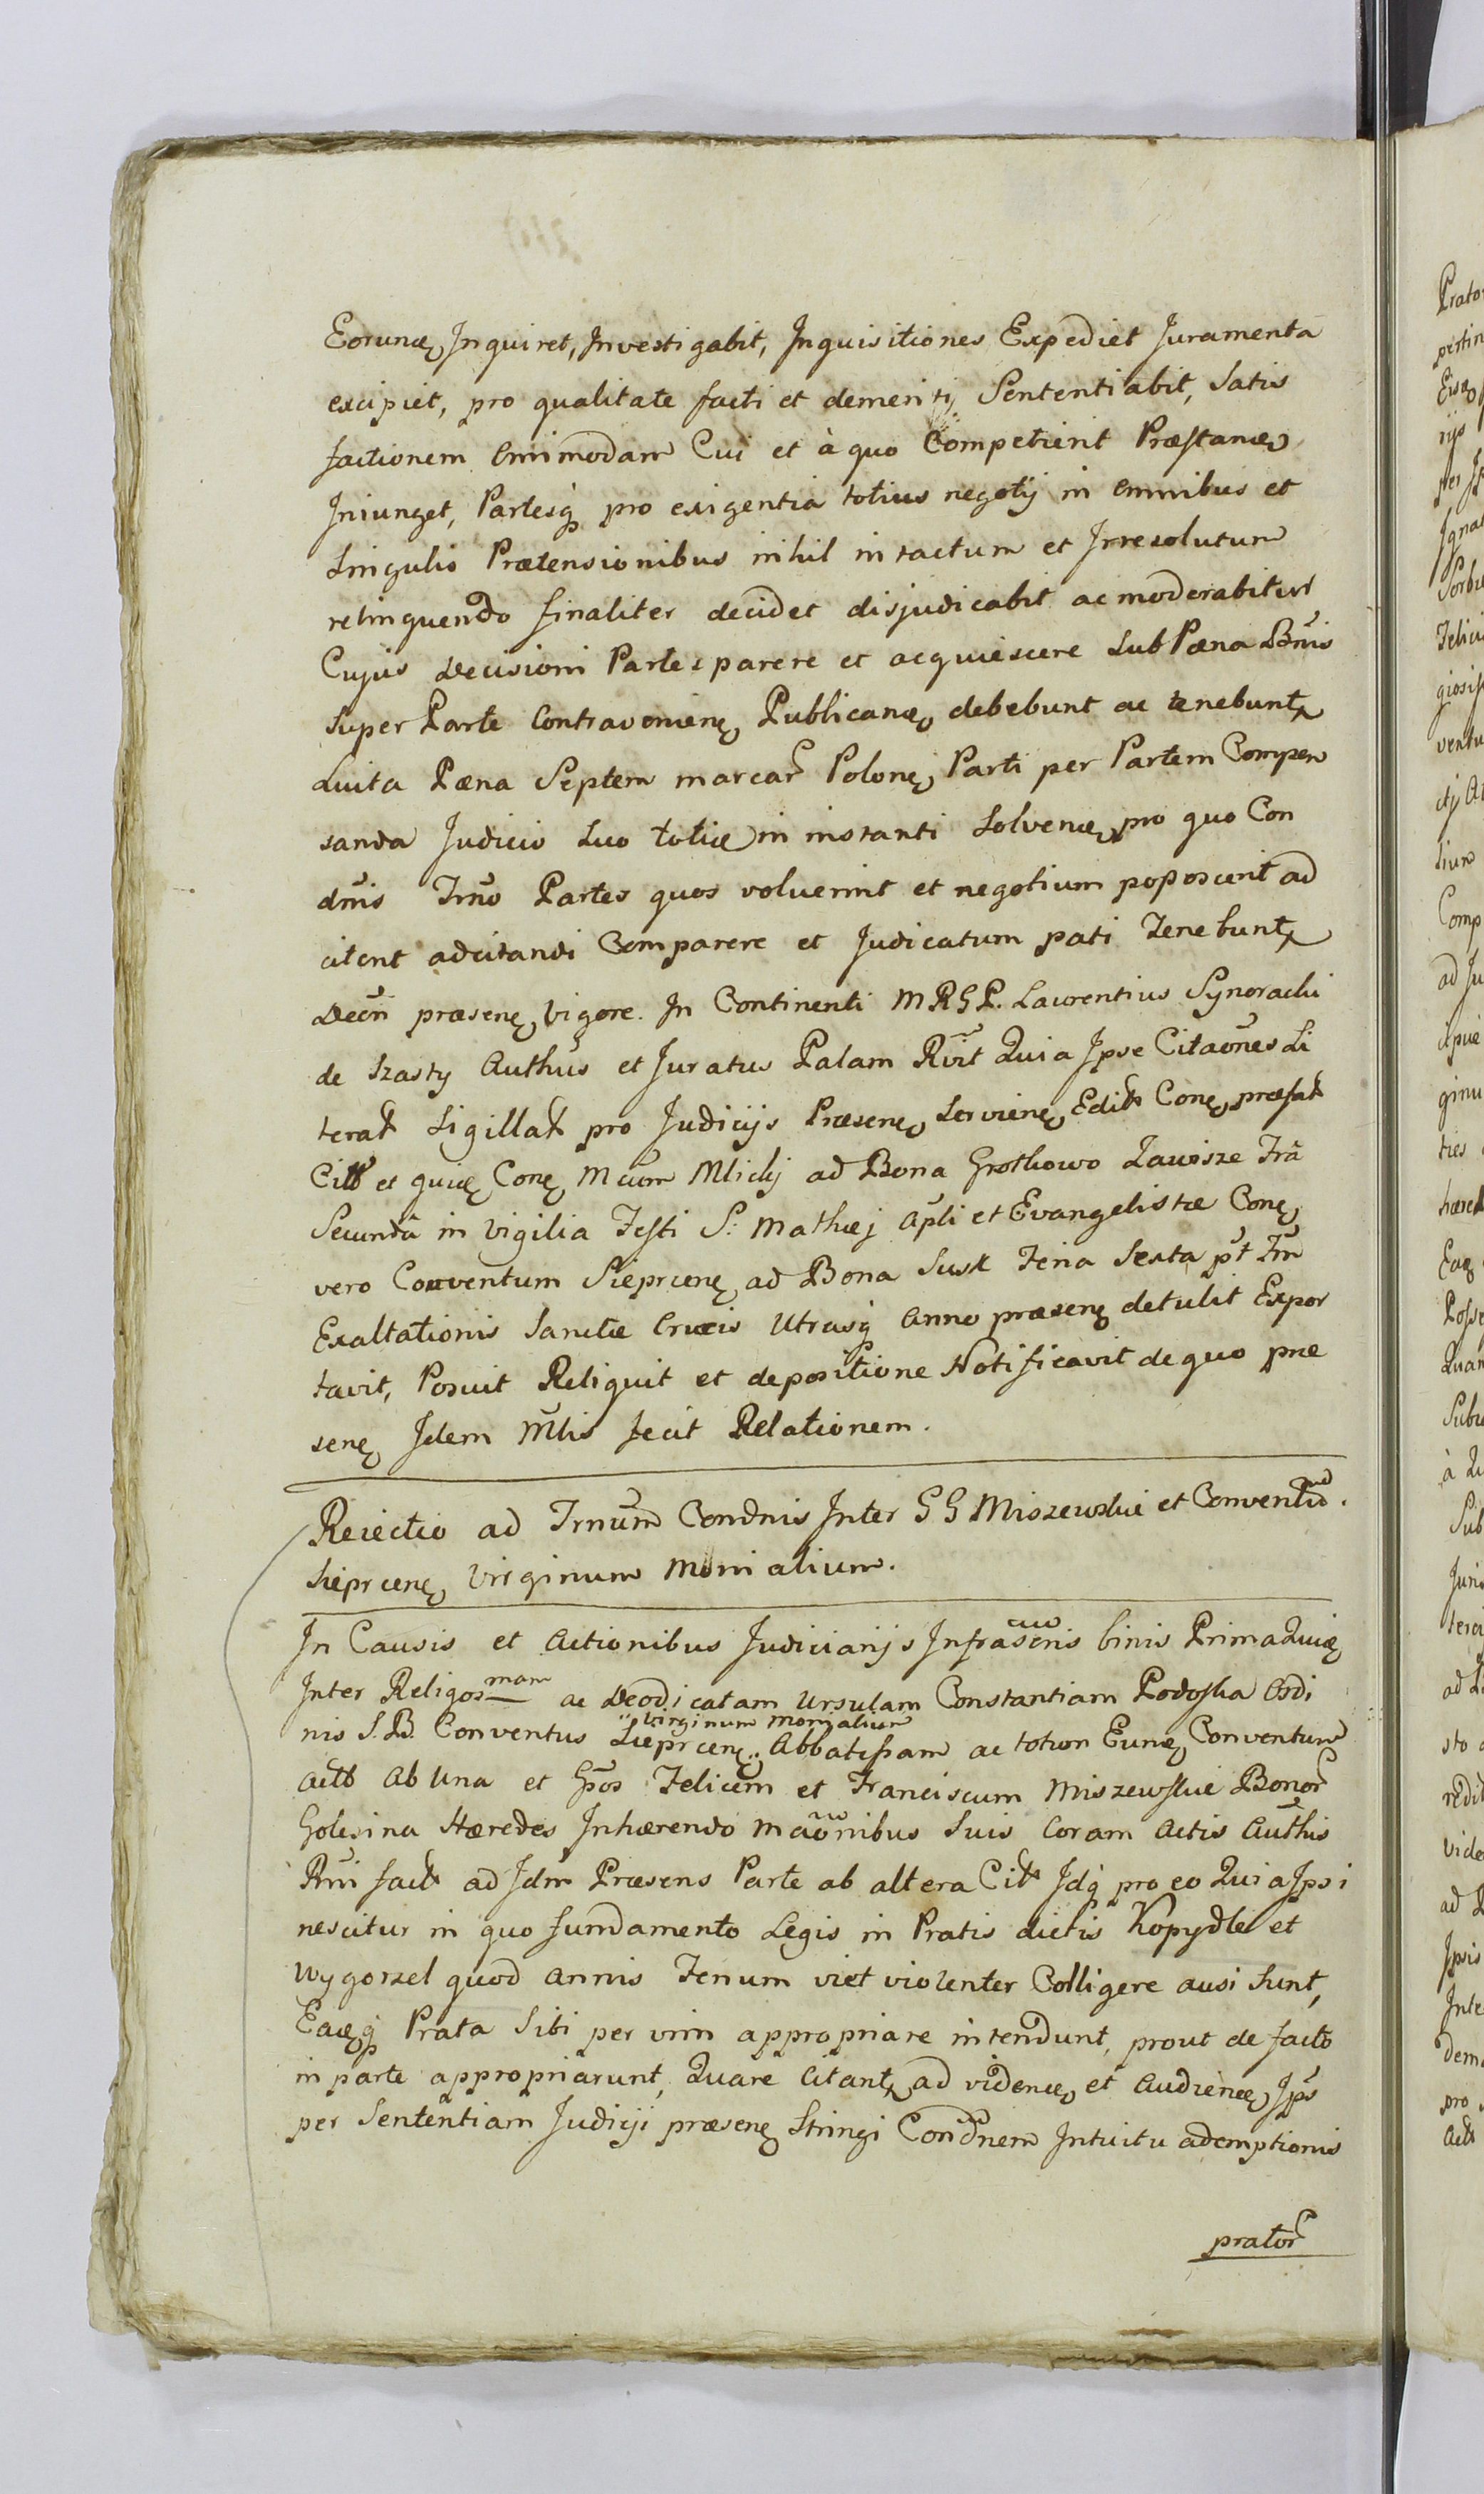 Eorunq Inquiret, Investigabit, Inquisitiones Expediet Juramenta
excipiet, pro qualitate facti et demeritj Sententiabit, Satis
factionem Omnimodam Cui et à quo Competierit Præstanq
Iniunget, Partesq pro exigentia totius negotij in omnibus et
Singulis Prætensionibus nihil intactum et Irresolutum
relinquendo finaliter decidet disjudicabit ac moderabitur
Cujus Decisioni Partes parere et acquiescere Sub Pæna Bnis
Super Parte Contravenienq Publicanq debebunt ac tenebuntr
Luita Pæna Septem marcar Polonq Parti per Partem Compen
sanda Judicio Suo toties in instanti Solvenq pro quo Con
dnis Trno Partes quos voluerint et negotium poposcerit ad
citent adcitandi Comparere et Judicatum pati Tenebuntr
Decn præsenq vigore. In Continenti MRGP. Laurentius Synoracki
de Szasty Authus et Juratus Palam Rvit Quia Ipse Citaones Li
terat Sigillat pro Judicijs Præsenq Servienq Edit Conq præfat
Citt et quiq Conq Mcum Mlicki ad Bona Grotkowo Zawisze Fria
Secunda in Vigilia Festi S: Mathæj Apli et Evangelistæ Conq
vero Conventum Sieprcenq ad Bona Susk Feria Sexta pt Fm
Exaltationis Sanctæ Crucis Utrasq Anno præsenq detulit Expor
tavit, Posuit Reliquit et depositione Notificavit de quo præ
senq Idem Mlis fecit Relationem.
Reiectio ad Trnum Condnis Inter G G Miszewskie et Conventum.
Sieprcenq Virginum Monialium.
In Causis et Actionibus Judiciarijs Infrascris binis Prima Quiq
Inter Religosmam ac Deodicatam Ursulam Constantiam Podoska Ordi
nis S. B. Conventus Sieprcenq Virginum Monialium Abbatissam ac totum Eunq Conventum
Actt Ab Una et Gsos Felicem et Franciscum Miszewskie Bonor
Golesina Hæredes Inhærendo Maonibus Suis Coram Actis Authis
Rmi fact ad Idm Præsens Parte ab altera Citt Idq pro eo Quia Ipsi
nescitur in quo fundamento Legis in Pratis dictis Kopydle et
Wygorzel quod annis Fenum vi et violenter Colligere ausi Sunt,
Eaqq Prata Sibi per vim appropriare intendunt, prout de facto
in parte appropriarunt, Quare Citantr ad videnq et Audienq Ips
per Sententiam Judicij præsenq Stringi Condnem Intuitu ademptionis
prator